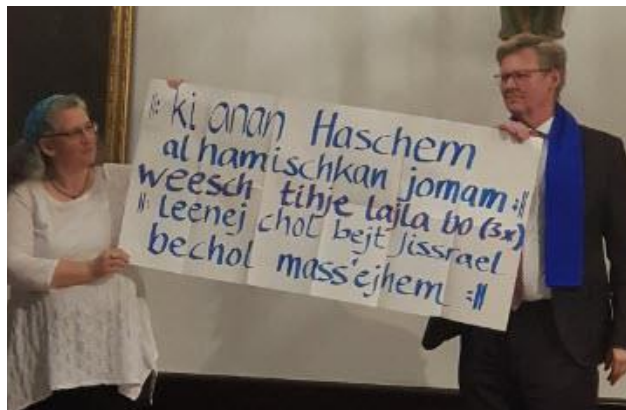 ‖: ki anan Haschem
al hamischkan jomam :‖
weesch tihje lajla bo (3x)
‖: leenej chol bejt jissrael
bechol mass'ejhem :‖